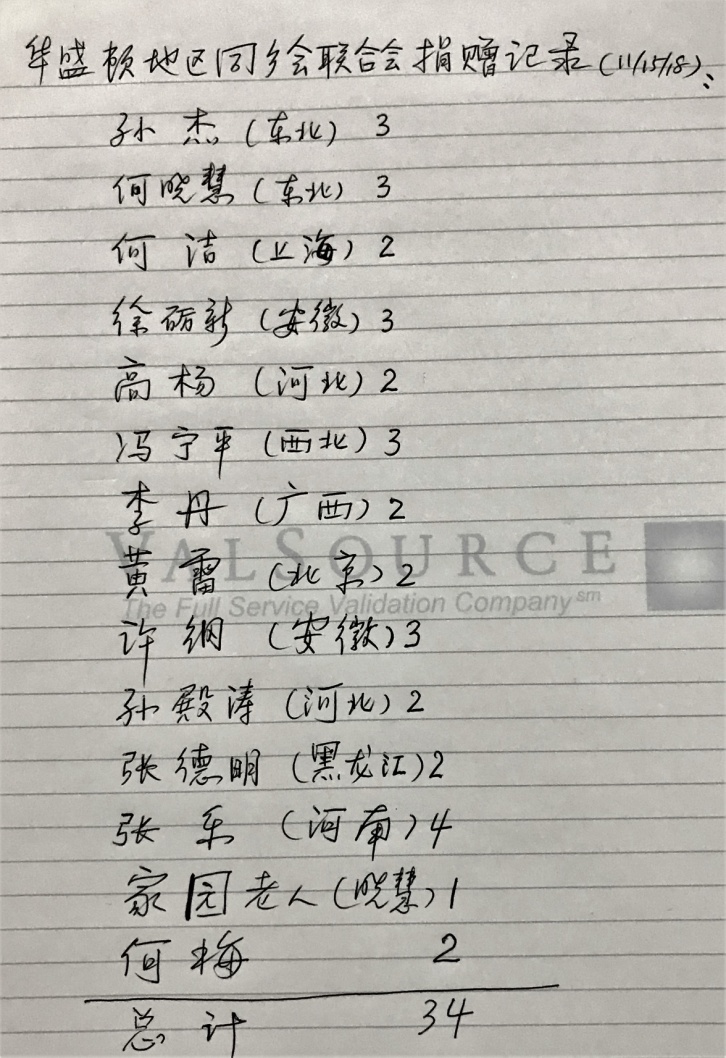 华盛顿地区同乡会联合会捐赠记录(11/15/18):
孙杰(东北) 3
何晓慧(东北) 3
何洁(上海) 2
徐砺新(安徽) 3
高杨(河北) 2
冯宁平(西北) 3
李丹(广西) 2
VALSOURCE
黄雷(北京) 2
The Full Service Validation Company sm
许纲(安徽) 3
孙殿涛(河北) 2
张德明(黑龙江) 2
张乐(河南) 4
家园老人(晓慧) 1
何梅 2
总计 34